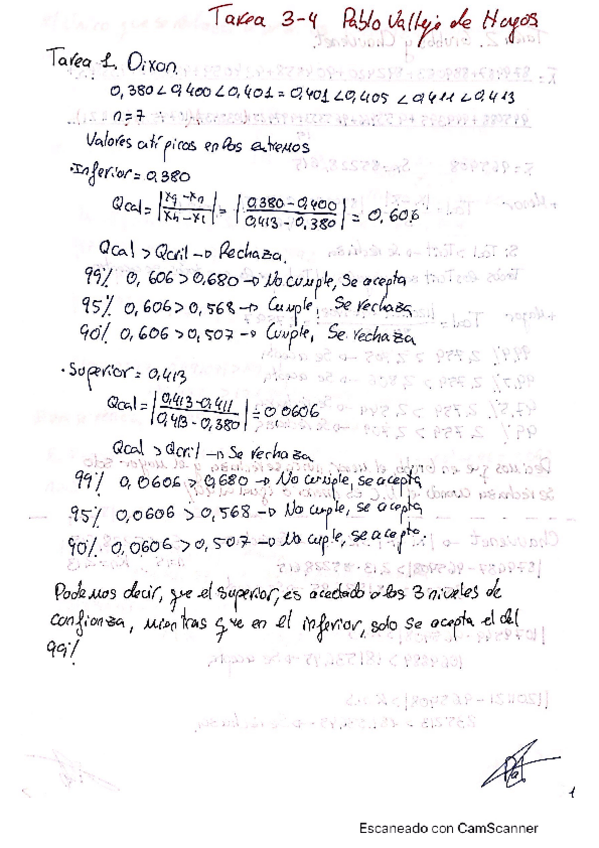 Tarea 3-4 Pablo Vallejo de Hoyos
Tarea 1. Dixon
0,380 < 0,400 < 0,401 = 0,401 < 0,405 < 0,411 < 0,413
n=7
Valores atípicos en los extremos
·Inferior = 0,380
Qcal = | x1 - xn / xn - x1 | = | 0,380 - 0,400 / 0,413 - 0,380 | = 0,606
Qcal > Qcrit → Rechaza.
99% 0,606 > 0,680 → No cumple, Se acepta
95% 0,606 > 0,568 → Cumple, Se rechaza
90% 0,606 > 0,507 → Cumple, Se rechaza
·Superior = 0,413
Qcal = | 0,413 - 0,411 / 0,413 - 0,380 | = 0,0606
Qcal > Qcrit → Se rechaza
99% 0,0606 > 0,680 → No cumple, se acepta
95% 0,0606 > 0,568 → No cumple, se acepta
90% 0,0606 > 0,507 → No cuple, se acepta.
Podemos decir, que el superior, es acectado a los 3 niveles de
confianza, mientras que en el inferior, solo se acepta el del
99%
1
Escaneado con CamScanner